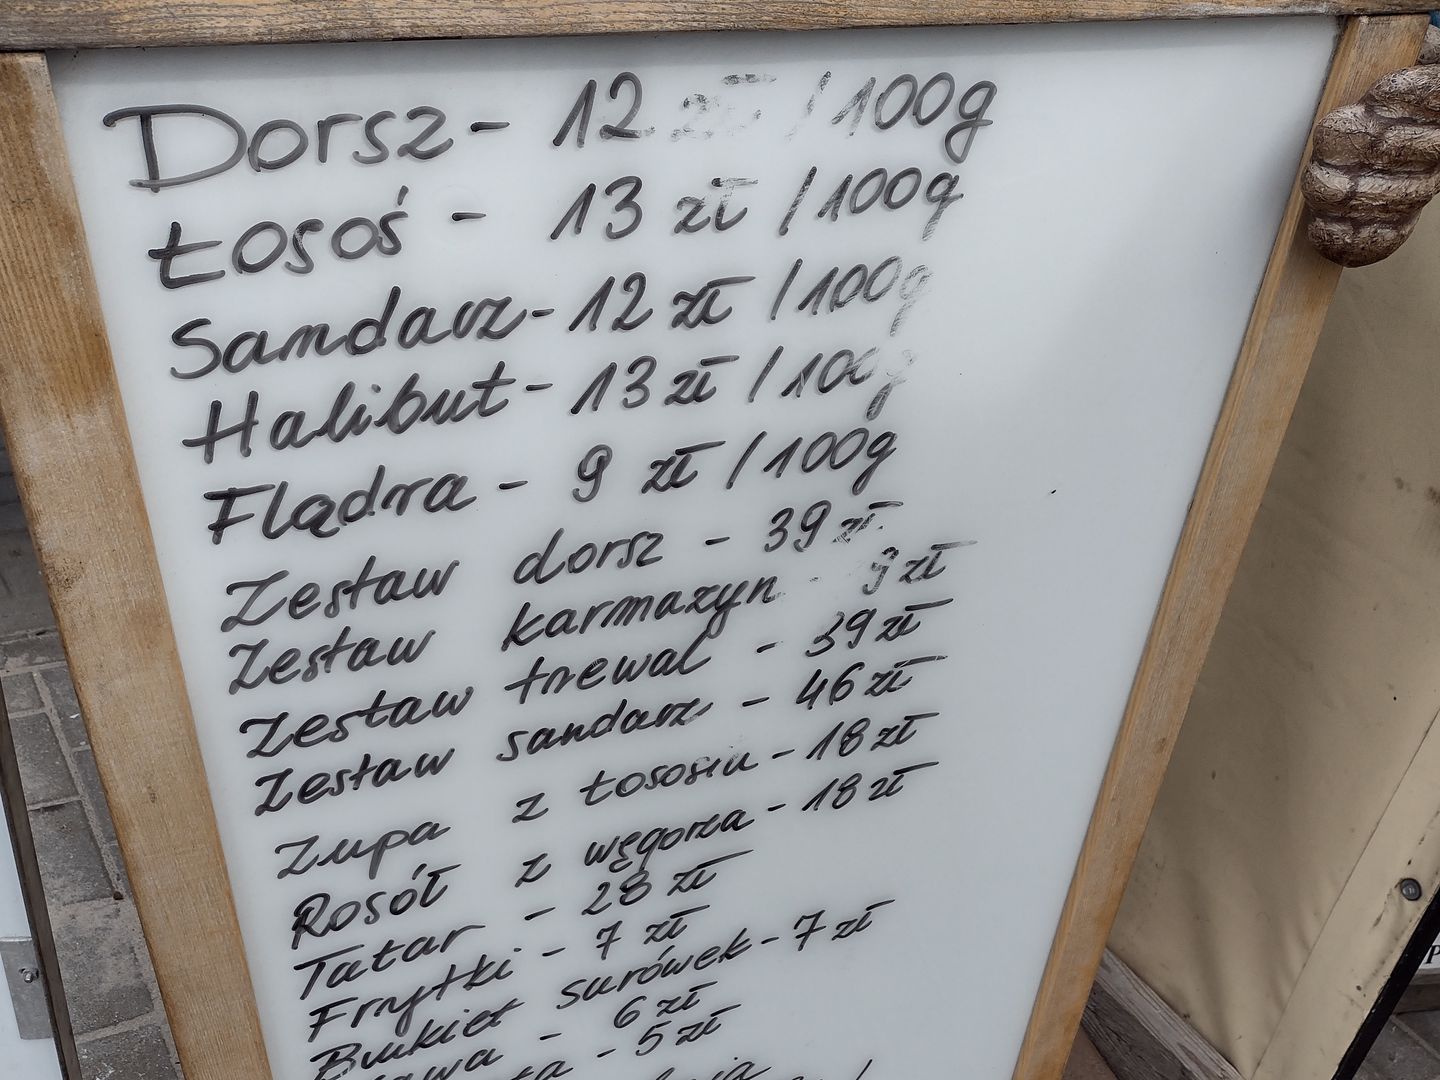 Dorsz - 12 zł / 100g
Łosoś - 13 zł / 100g
Sandacz - 12 zł / 100g
Halibut - 13 zł / 100g
Flądra - 9 zł / 100g
Zestaw dorsz - 39 zł
Zestaw karmazyn 9 zł
Zestaw trewal - 39 zł
Zestaw sandacz - 46 zł
Zupa z łososia - 18 zł
Rosół z węgorza - 18 zł
Tatar - 28 zł
Frytki - 7 zł
Bukiet surówek - 7 zł
- 6 zł
- 5 zł